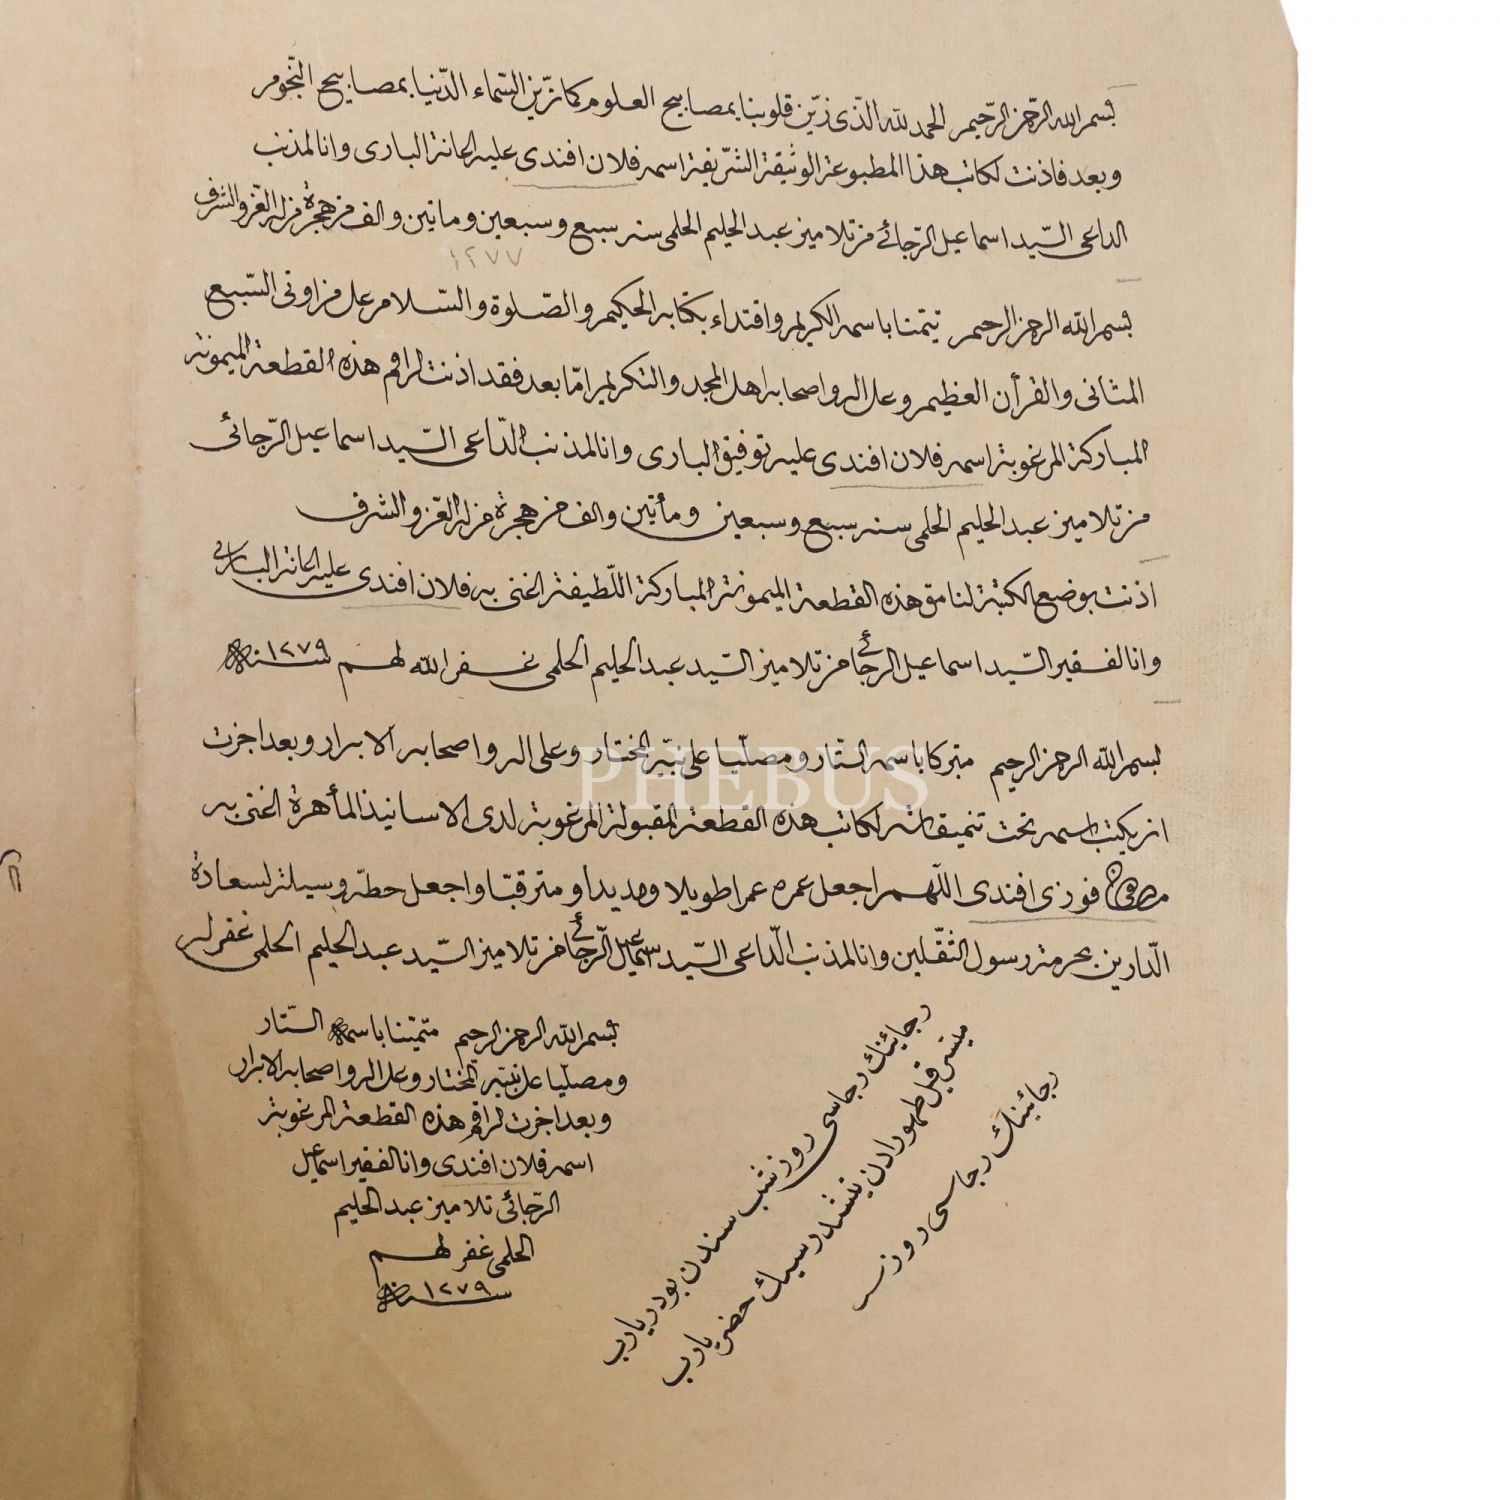 بسم الله الرحمن الرحيم الحمد لله الذى زين قلوبنا بمصابيح العلوم كما زين السماء الدنيا بمصابيح النجوم
وبعد فاذنت لكاتب هذا المطبوعة الوثيقة الشريفة اسمه فلان افندى عليه اعانة البارى وانا المذنب
الداعى السيد اسماعيل الرجائى من تلاميذ عبد الحليم الحلمى سنه سبع وسبعين وماتين والف من هجرة من له العز والشرف
١٢٧٧
بسم الله الرحمن الرحيم تيمنا باسمه الكريم واقتداء بكتابه الحكيم والصلوة والسلام على من اوتى السبع
المثانى والقرأن العظيم وعلى اله واصحابه اهل المجد والتكريم اما بعد فقد اذنت لراقم هذه القطعة الميمونة
المباركة المرغوبة اسمه فلان افندى عليه توفيق البارى وانا المذنب الداعى السيد اسماعيل الرجائى
من تلاميذ عبد الحليم الحلمى سنه سبع وسبعين ومأتين والف من هجرة من له العز والشرف
اذنت بوضع الكتبة لنامق هذه القطعة الميمونة المباركة اللطيفة اعنى به فلان افندى عليه اعانة البارى
وانا الفقير السيد اسماعيل الرجائى من تلاميذ السيد عبد الحليم الحلمى غفر الله لهم سنه ١٢٧٩
بسم الله الرحمن الرحيم متبركا باسمه الستار ومصليا على نبيه المختار وعلى اله واصحابه الابرار وبعد اجزت
ان يكتب اسمه تحت تنميقاته لكاتب هذه القطعة المقبولة المرغوبة لدى الاساتيذ المأهرة اعنى به
فوزى افندى اللهم اجعل عمره عمرا طويلا ومديدا ومترقبا واجعل خطه وسيلة لسعادة
الدارين بحرمة رسول الثقلين وانا المذنب الداعى السيد اسماعيل الرجائى من تلاميذ السيد عبد الحليم الحلمى غفر له
بسم الله الرحمن الرحيم متيمنا باسمه الستار
ومصليا على نبيه المختار وعلى اله واصحابه الابرار
وبعد اجزت لراقم هذه القطعة المرغوبة
اسمه فلان افندى وانا الفقير اسماعيل
الرجائى تلاميذ عبد الحليم
الحلمى غفر لهم
سنه ١٢٧٩
رجائينك رجاسى روز شب سندن بودر يارب
ميسر قيل ظهورادن يتشدر سيك حضر يارب
رجائينك رجاسى روز
PHEBUS